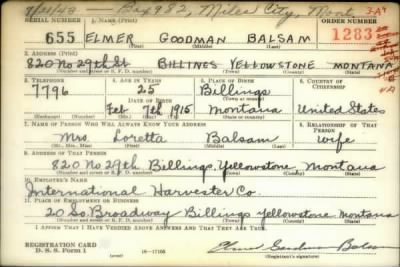 9/21/43 — Box 982, Miles City, Mont.
SERIAL NUMBER 1. NAME (Print) ORDER NUMBER
655 ELMER GOODMAN BALSAM 1283
(First) (Middle) (Last)
2. ADDRESS (Print)
820 No 29th St BILLINGS YELLOWSTONE MONTANA
(Number and street or R. F. D. number) (Town) (County) (State)
3. TELEPHONE 4. AGE IN YEARS 5. PLACE OF BIRTH 6. COUNTRY OF CITIZENSHIP
7796 25 Billings
DATE OF BIRTH (Town or county)
Feb 7th 1915 Montana United States
(Mo.) (Day) (Yr.) (State or country)
7. NAME OF PERSON WHO WILL ALWAYS KNOW YOUR ADDRESS 8. RELATIONSHIP OF THAT PERSON
Mrs. Loretta Balsam Wife
(Mr., Mrs., Miss) (First) (Middle) (Last)
9. ADDRESS OF THAT PERSON
820 No 29th Billings Yellowstone Montana
(Number and street or R. F. D. number) (Town) (County) (State)
10. EMPLOYER'S NAME
International Harvester Co.
11. PLACE OF EMPLOYMENT OR BUSINESS
20 So. Broadway Billings Yellowstone Montana
(Number and street or R. F. D. number) (Town) (County) (State)
I AFFIRM THAT I HAVE VERIFIED ABOVE ANSWERS AND THAT THEY ARE TRUE.
REGISTRATION CARD
D. S. S. Form 1 16—17105 Elmer Goodman Balsam
(Registrant's signature)